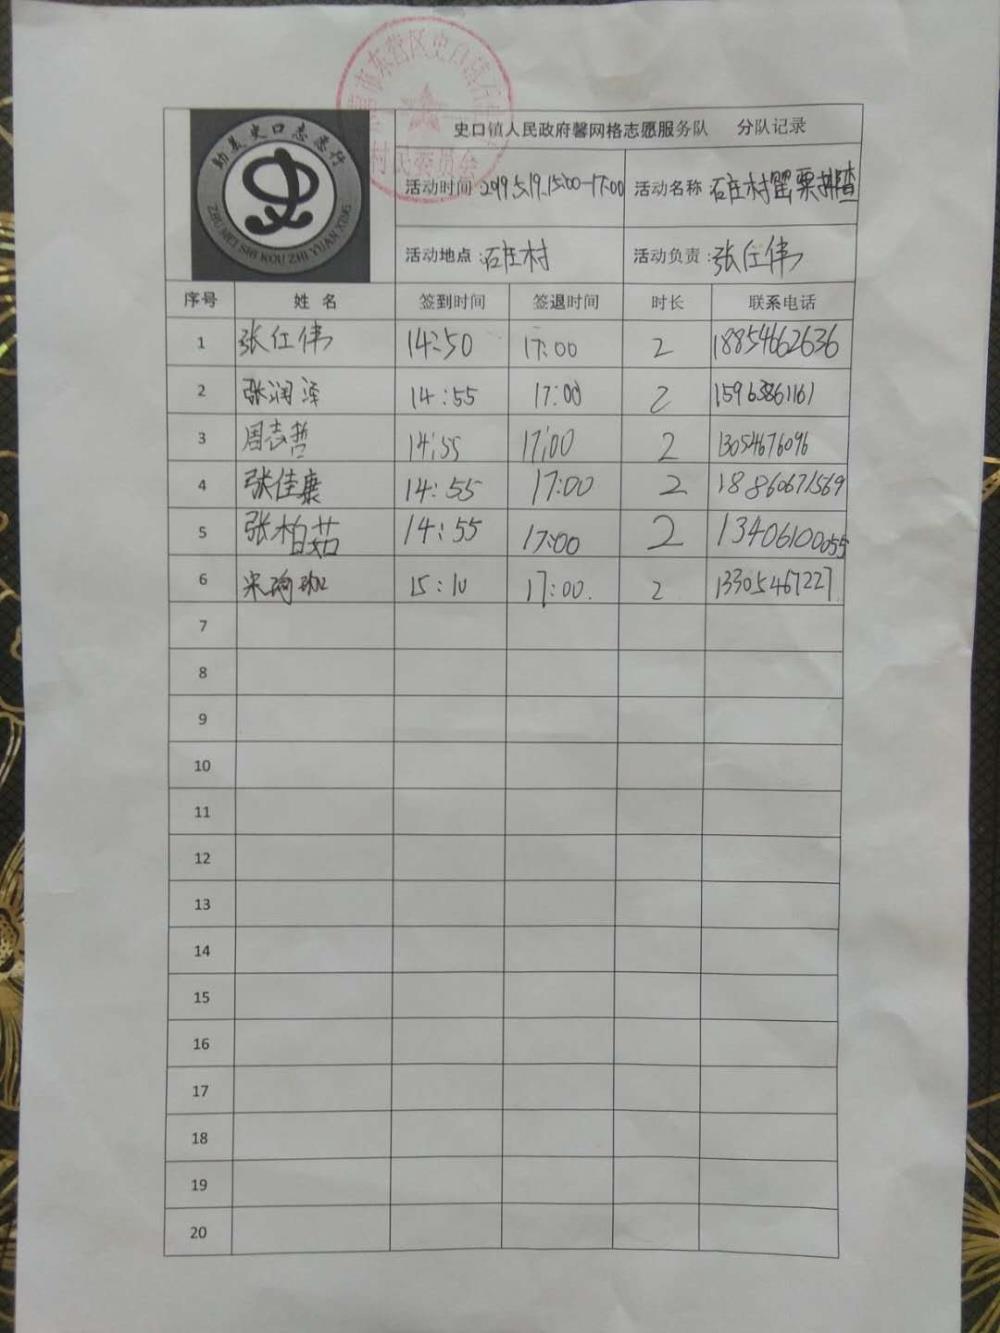 助美史口志愿行
ZHU MEI SHI KOU ZHI YUAN XING
市东营区史口镇石
村民委员会
史口镇人民政府馨网格志愿服务队 分队记录
活动时间 2019.5.19.15:00-17:00 活动名称 石庄村罂粟排查
活动地点:石庄村 活动负责:张仕伟
序号 姓名 签到时间 签退时间 时长 联系电话
1 张仕伟 14:50 17:00 2 18854662636
2 张润泽 14:55 17:00 2 15963861161
3 周志哲 14:55 17:00 2 13054676096
4 张佳康 14:55 17:00 2 18860671569
5 张柏茹 14:55 17:00 2 13406100055
6 宋 15:10 17:00. 2 13305467227.
7
8
9
10
11
12
13
14
15
16
17
18
19
20